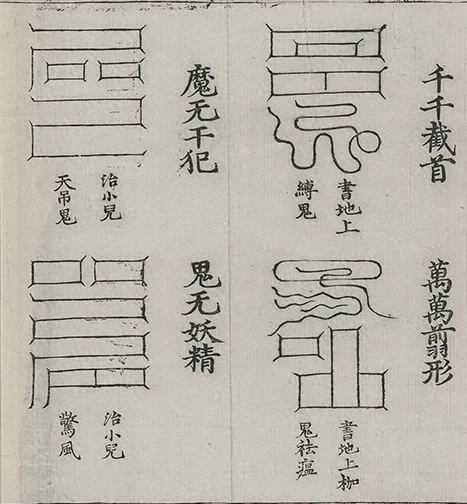 千千截首
書地上
縛鬼
萬萬翦形
書地上枷
鬼祛瘟
魔无干犯
治小兒
天吊鬼
鬼无妖精
治小兒
驚風